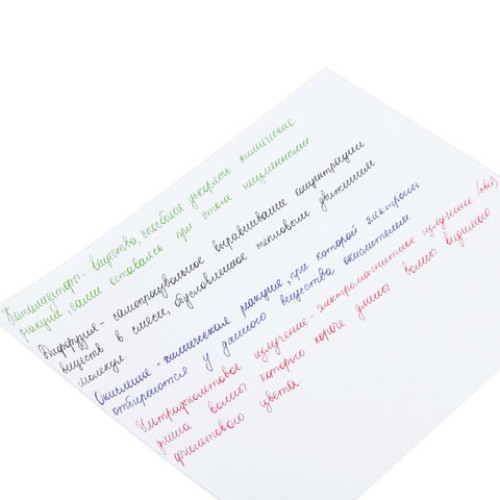 Катализаторы - вещества, способные ускорять химические
реакции, сами оставаясь при этом неизменными
Диффузия - самопроизвольное выравнивание концентрации
веществ в смеси, обусловленное тепловым движением
молекул.
Окисление - химическая реакция, при которой электроны
отбираются у данного вещества окислителем
Ультрафиолетовое излучение - электромагнитное излучение
длина волны которого короче длины волны видимого
фиолетового цвета.